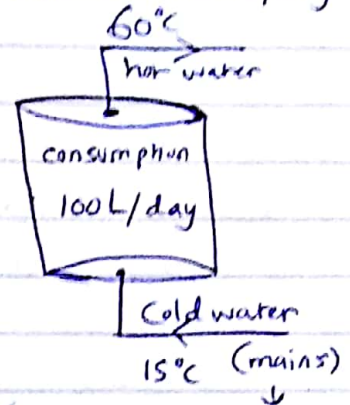 60°C
hot water
consumption
100L/day
Cold water
15°C (mains)
↓